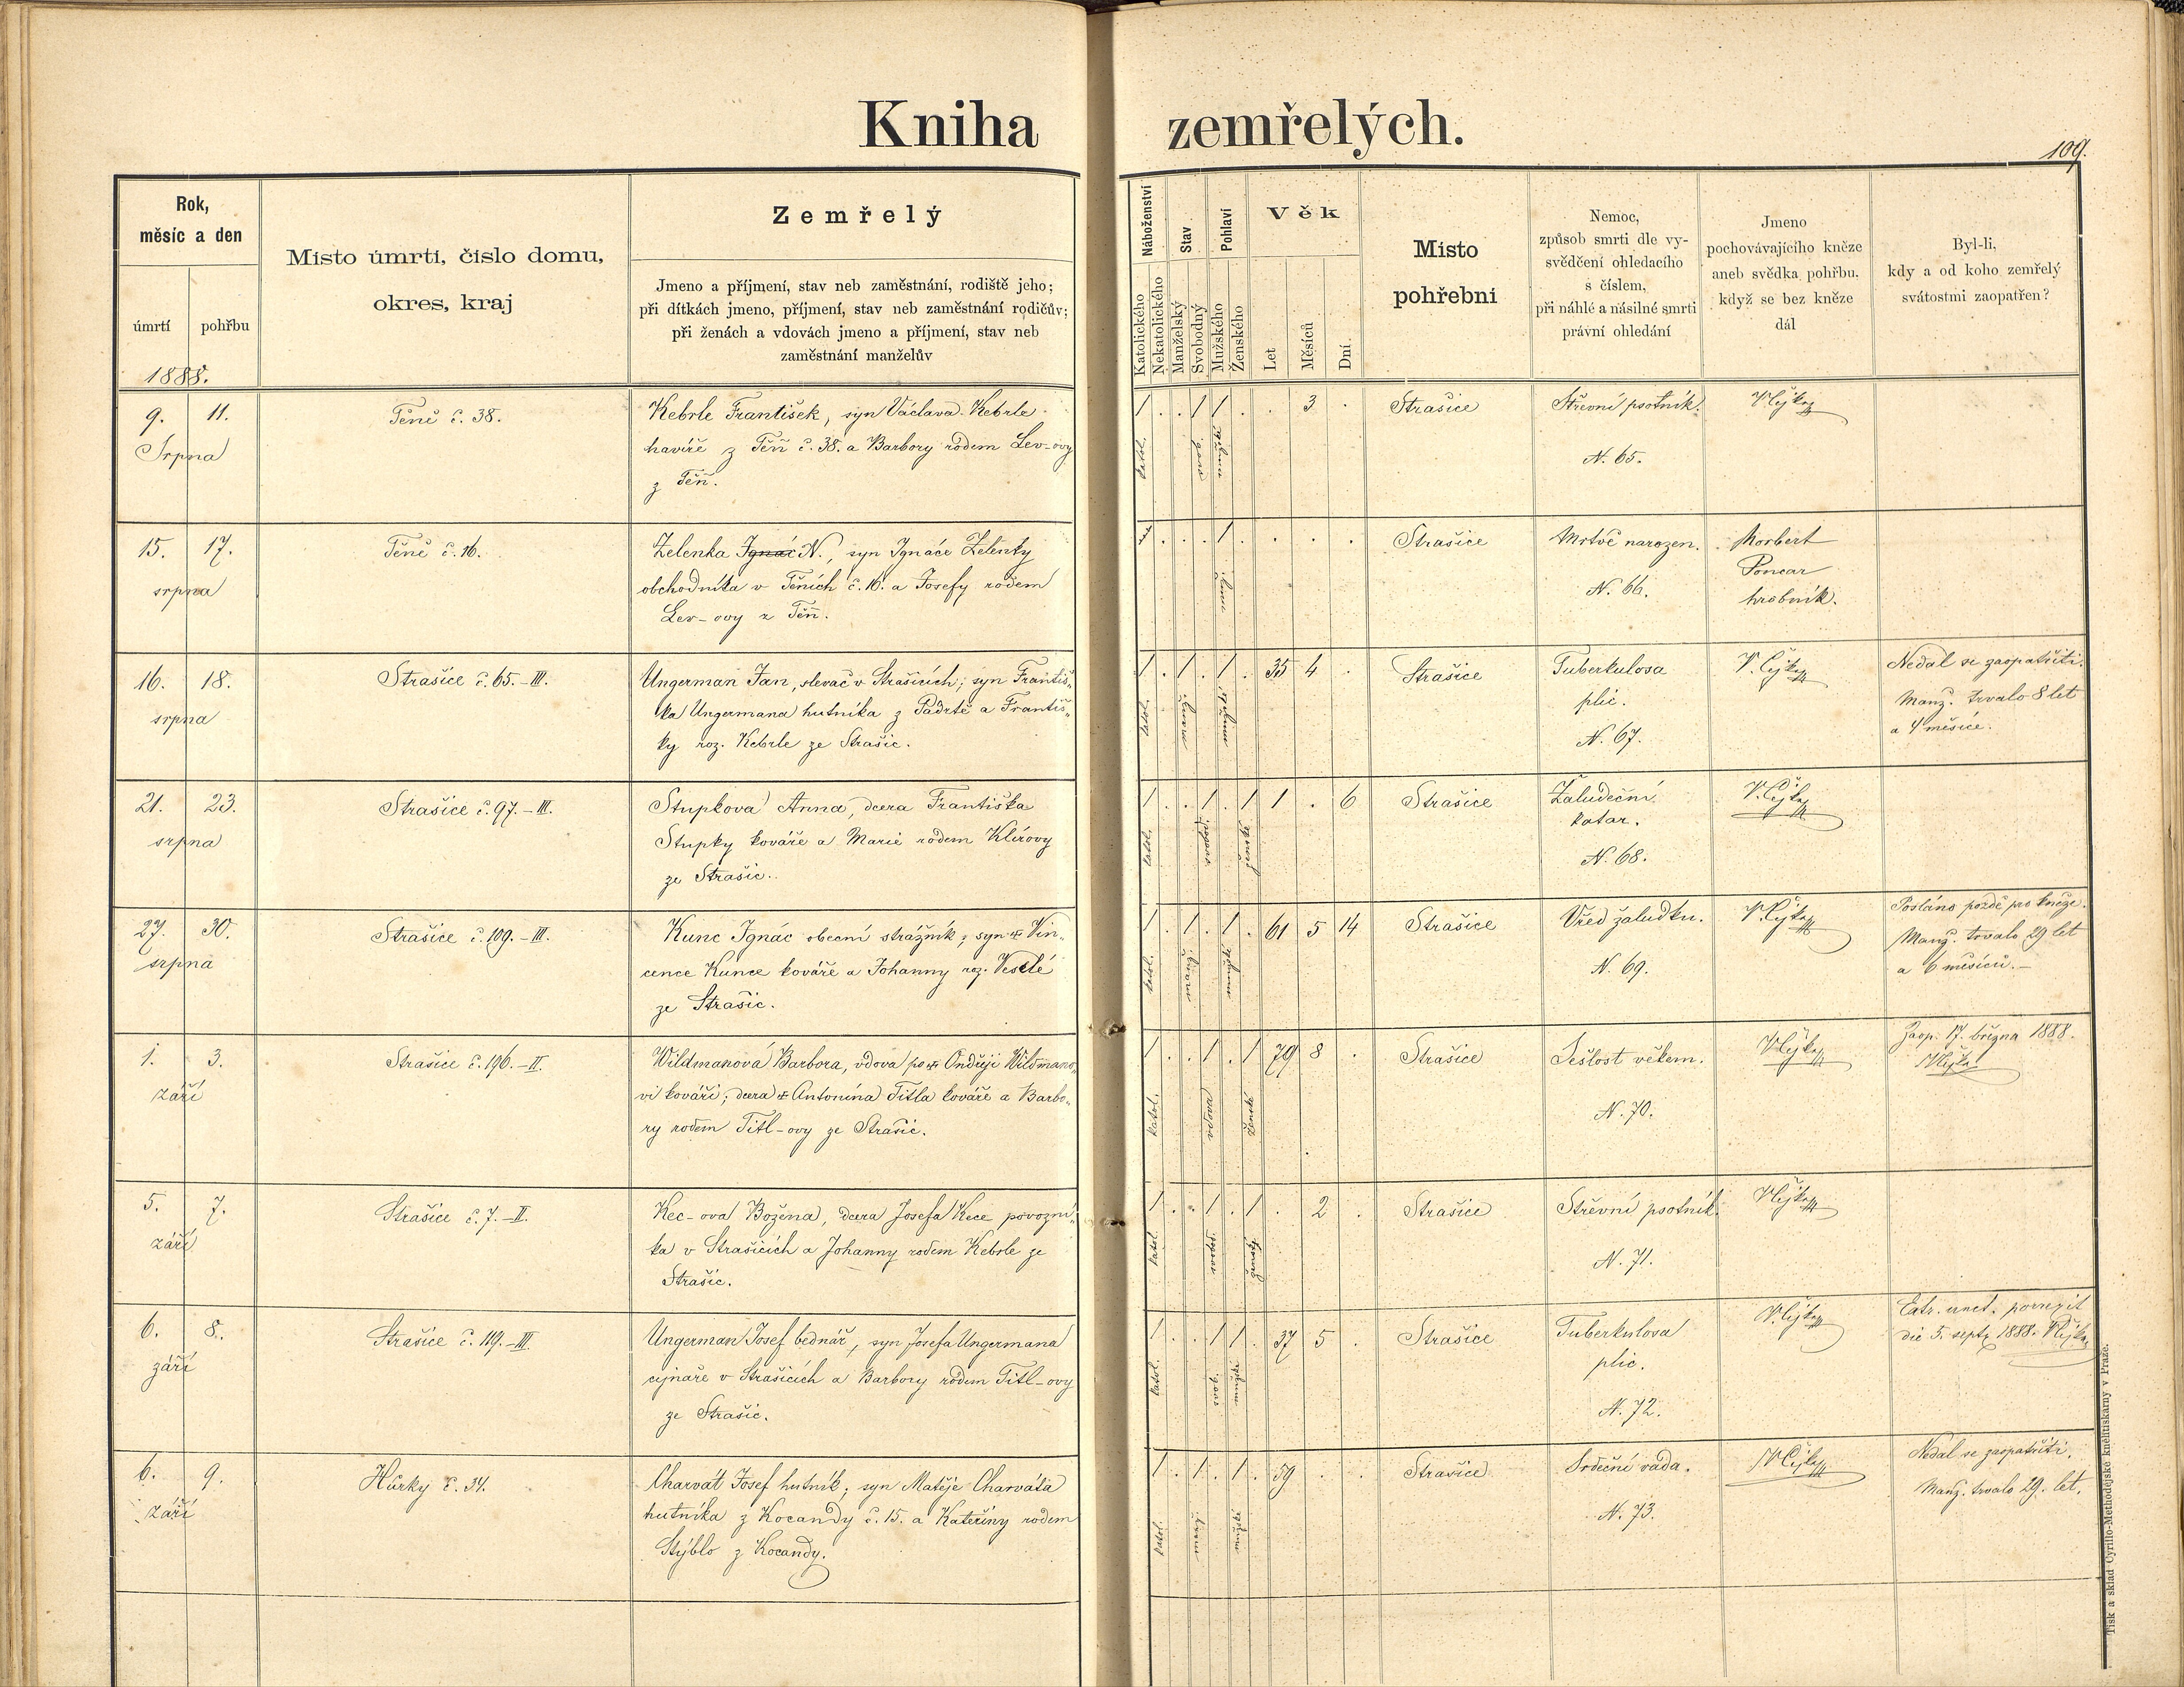 Kniha zemřelých.
109.
Rok,
měsíc a den
úmrtí
pohřbu
1888.
Místo úmrtí, číslo domu,
okres, kraj
Zemřelý
Jmeno a příjmení, stav neb zaměstnání, rodiště jeho;
při dítkách jmeno, příjmení, stav neb zaměstnání rodičův;
při ženách a vdovách jmeno a příjmení, stav neb
zaměstnání manželův
Náboženství
Katolického
Nekatolického
Stav
Manželský
Svobodný
Pohlaví
Mužského
Ženského
Věk
Let
Měsíců
Dní
Místo
pohřební
Nemoc,
způsob smrti dle vy-
svědčení ohledacího
s číslem,
při náhlé a násilné smrti
právní ohledání
Jmeno
pochovávajícího kněze
aneb svědka pohřbu,
když se bez kněze
dál
Byl-li,
kdy a od koho zemřelý
svátostmi zaopatřen?
9. 11.
Srpna
Těně č. 38.
Kebrle František, syn Václava Kebrle
havíře z Těň č. 38. a Barbory rodem Lev-ovy
z Těň.
1 . . 1 1 . . 3 .
katol.
Strašice
Střevní psotník.
N. 65.
V. Čejka
15. 17.
srpna
Těně č. 16.
Zelenka Ignác N., syn Ignáce Zelenky
obchodníka v Těních č. 16. a Josefy rodem
Lev-ovy z Těň.
1 . . . 1 . . . .
Strašice
Mrtvě narozen.
N. 66.
Norbert
Poncar
hrobník.
16. 18.
srpna
Strašice č. 65.-III.
Ungerman Jan, slevač v Strašicích; syn Františ„
ka Ungermana hutníka z Padrtě a Františ„
ky roz. Kebrle ze Strašic.
1 . 1 . 1 . 35 4 .
katol.
Strašice
Tuberkulosa
plic.
N. 67.
V. Čejka
Nedal se zaopatřiti.
Manž. trvalo 8 let
a 4 měsíce.
21. 23.
srpna
Strašice č. 97.-III.
Stupkova Anna, dcera Františka
Stupky kováře a Marie rodem Klírovy
ze Strašic.
1 . . 1 . 1 1 . 6
katol.
Strašice
Žaludeční
katar.
N. 68.
V. Čejka
27. 30.
srpna
Strašice č. 109.-III.
Kunc Ignác obecní strážník; syn Vin„
cence Kunce kováře a Johanny roz. Veselé
ze Strašic.
1 . 1 . 1 . 61 5 14
katol.
Strašice
Vřed žaludku.
N. 69.
V. Čejka
Posláno pozdě pro kněze.
Manž. trvalo 29 let
a 6 měsíců.—
1. 3.
září
Strašice č. 196.-II.
Wildmanová Barbora, vdova po Ondřeji Wildmano„
vi kováři; dcera Antonína Titla kováře a Barbo„
ry rodem Titl-ovy ze Strašic.
1 . . 1 . 1 79 8 .
katol.
vdova
ženské
Strašice
Sešlost věkem.
N. 70.
V. Čejka
Zaop. 17. března 1888.
V. Čejka
5. 7.
září
Strašice č. 7.-II.
Kec-ova Božena, dcera Josefa Kece povozní„
ka v Strašicích a Johanny rodem Kebrle ze
Strašic.
1 . . 1 . 1 . 2 .
katol.
Strašice
Střevní psotník.
N. 71.
V. Čejka
6. 8.
září
Strašice č. 119.-III.
Ungerman Josef bednář, syn Josefa Ungermana
cejnaře v Strašicích a Barbory rodem Titl-ovy
ze Strašic.
1 . . 1 1 . 37 5 .
katol.
Strašice
Tuberkulosa
plic.
N. 72.
V. Čejka
Extr. unct. porrexit
die 5. sept. 1888. V. Čejka
6. 9.
září
Hůrky č. 34.
Charvát Josef hutník; syn Matěje Charváta
hutníka z Kocandy č. 15. a Kateřiny rodem
Stýblo z Kocandy.
1 . 1 . 1 . 59 . .
katol.
Strašice
Srdeční vada.
N. 73.
V. Čejka
Nedal se zaopatřiti.
Manž. trvalo 29. let.
Tisk a sklad Cyrillo-Methodějské knihtiskárny v Praze.